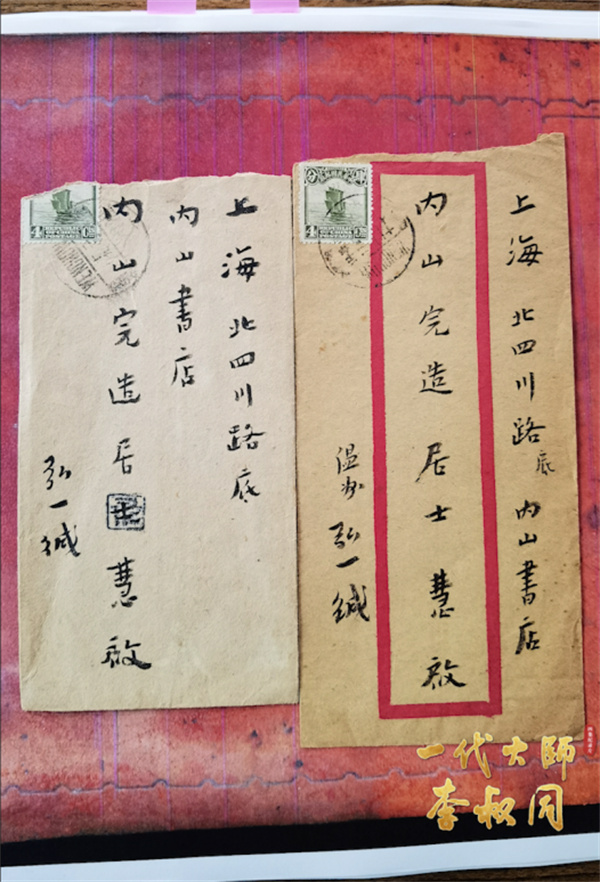 上海北四川路底
内山書店
内山完造居士慧啟
弘一緘
4
上海北四川路底内山書店
内山完造居士慧啟
温州弘一緘
4
一代大師
李叔同